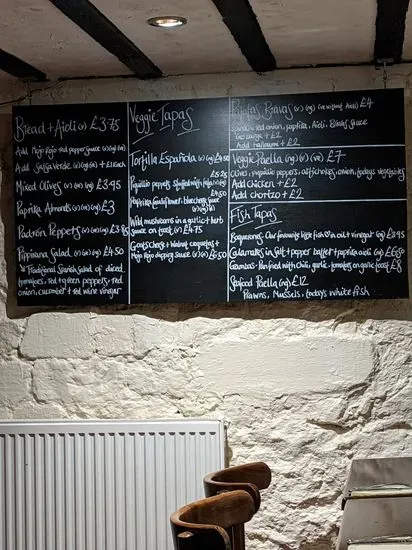 Bread + Aioli (v) £3.75
Add Mojo Rojo red pepper sauce (v)(ng)(ve)
Add Salsa Verde (v)(ng)(ve) + £1 each
Mixed Olives (v)(ng) £3.95
Paprika Almonds (v)(ng) £3
Padron Peppers (v)(ng) £3.85
Pipirrana Salad (v)(ng) £4.50
Traditional Spanish salad of diced
tomatoes, red + green peppers, red
onion, cucumber + red wine vinegar
Veggie Tapas
Tortilla Española (v)(ng) £4.50
Piquillo peppers stuffed with £5.25
Paprika cauliflower, blue cheese sauce £4.50
Wild mushrooms in a garlic + herb
sauce on toast £4.75
Goats Cheese + Walnut croquetas +
Mojo Rojo dipping sauce (v) £6.50
Patatas Bravas (v)(ng) (ve without Aioli) £4
red onion, paprika, Aioli, Bravas Sauce
Go large + £2
Add halloumi + £2
Veggie Paella (ng)(v)(ve) £7
Olives, piquillo peppers, artichokes, onion, todays vegetables
Add chicken + £2
Add chorizo + £2
Fish Tapas
Boquerones - Our favourite little fish in oil + vinegar (ng) £3.95
Calamares in salt + pepper batter + paprika aioli (ng) £6.50
Gambas - Pan fried with chilli, garlic, tomatoes on garlic toast £8
Seafood Paella (ng) £12
Prawns, Mussels, todays white fish